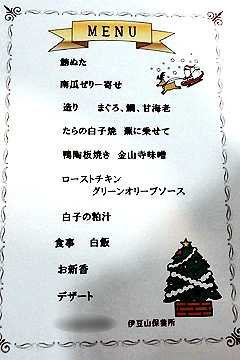 MENU
鮪ぬた
南瓜ゼリー寄せ
造り まぐろ、鯛、甘海老
たらの白子焼 蕪に乗せて
鴨陶板焼き 金山寺味噌
ローストチキン
グリーンオリーブソース
白子の粕汁
食事 白飯
お新香
デザート
伊豆山保養所